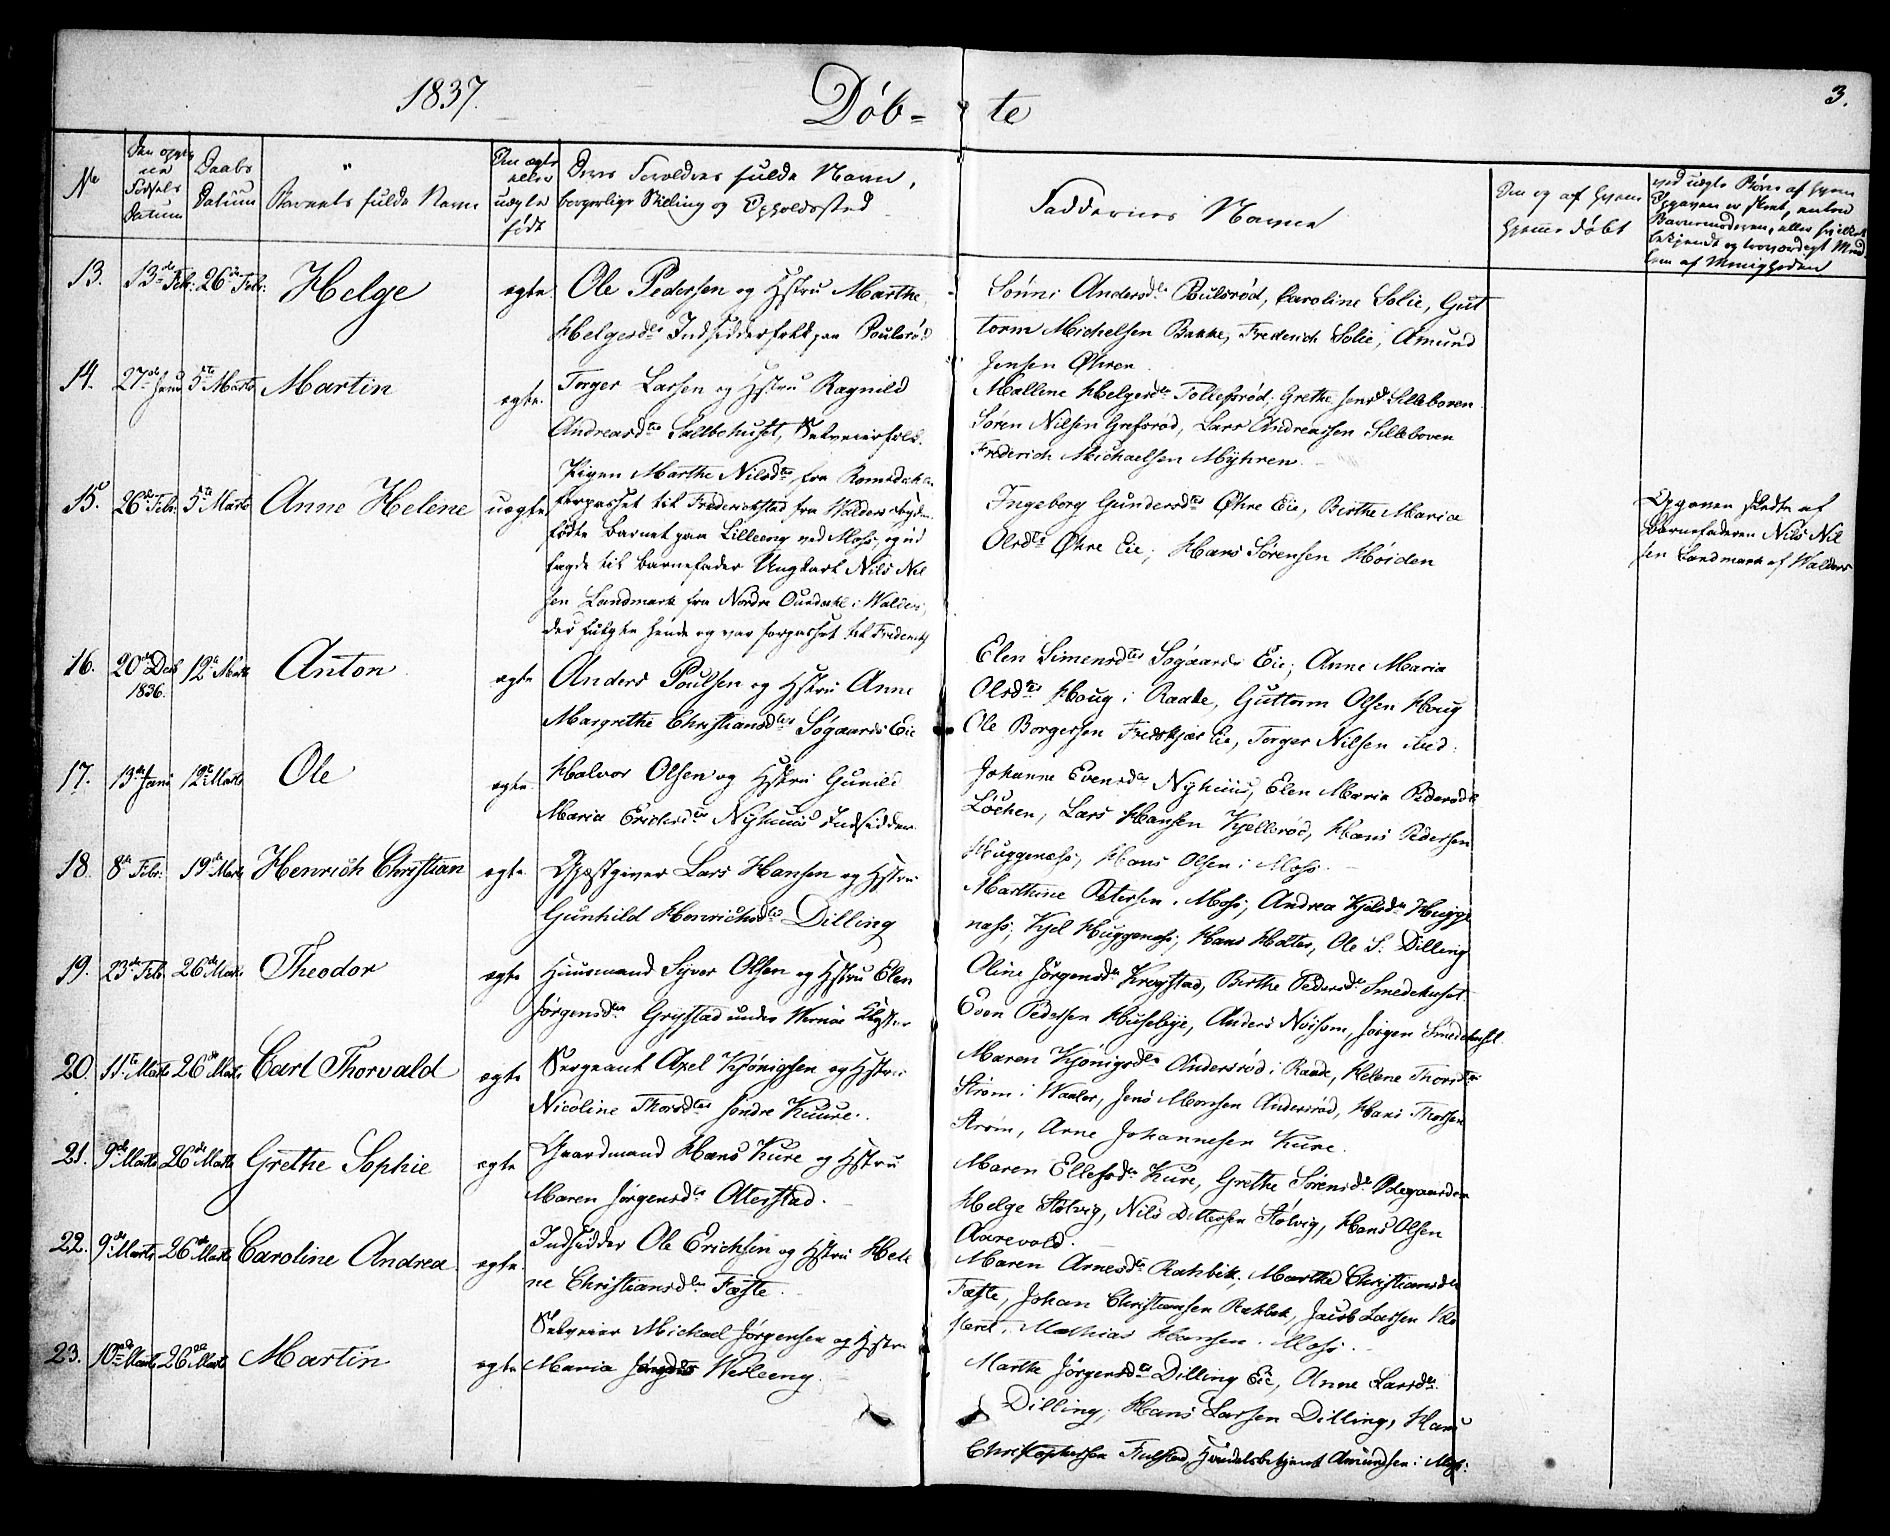 1837.
Døb- te
3.
No
Den opgivne Fødsels Datum
Daabs Datum
Barnets fulde Navn
Om ægte eller uægte født
Dens Forældres fulde Navn, borgerlige Stilling og Opholdssted
Faddernes Navne
Om og af hvem hjemme døbt
ved uægte Børn af hvem Opgaven er skeet, enten Barnemoderen, eller
af Menigheden
13. 13de Febr. 26de Febr. Helge ægte Ole Pedersen og Hstru Marthe
Helgesdtr Indsidderfolk paa Poulsrød
Sønni Andersdtr Poulsrød, Caroline Solie, Gut
torm Michelsen Bakke, Frederich Solie, Amund
Jensen Øhren
14. 27de Janu 5te Marts Martin ægte Torger Larsen og Hstru Ragnild
Andreasdtr Saltbehuset, Selveierfolk.
Mallene Helgesdtr Tollefsrød, Grethe Jensdtr Silleboven
Søren Nilsen Grefsrød, Lars Andreassen Silleboven
Frederich Michaelsen Myhren
15. 26de Febr. 5te Marts Anne Helene uægte Pigen Marthe Nilsdtr fra Romsdahlen
forpasset til Frederickstad fra
fødte Barnet paa Lilleeng ved Moss, og ud
lagde til Barnefader Ungkarl Nils Nil
sen Landmark fra Nordre i Walders,
der fulgte hende og var forpasset til Frederichs
Ingeborg Gundersdtr Øhre Eie, Birthe Maria
Olsdtr Øhre Eie, Hans Sørensen Høiden
Opgaven skedte af
Barnefaderen Nils Nil
sen Landmark af Walders
16. 20de Decb 1836. 12te Marts Anton ægte Anders Poulsen og Hstru Anne
Margrethe Christiansdtr Søgaards Eie
Elen Simensdtr Søgaards Eie; Anne Maria
Olsdtr Houg i Raade, Guttorm Olsen Houg
Ole Borgersen Fredskjær Eie, Torger Nilsen ibid.
17. 13de Janu 12te Marts Ole ægte Halvor Olsen og Hstru Gunild
Maria Erichsdtr Nyhuus Indsidder
Johanne Evensdtr Nyhuus, Elen Maria Pedersdtr
Løchen, Lars Hansen Kjellerød, Hans Pedersen
Huggenæss, Hans Olsen i Moss.
18. 8de Febr. 19de Marts Henrich Christian ægte Gjæstgiver Lars Hansen og Hstru
Gunhild Henrichsdtr Dilling
Marthine Petersen, Moss; Andrea Kjelsdtr Hugge
næss; Kjel Huggenæss; Hans Holter, Ole S. Dilling
19. 23de Feb. 26de Marts Theodor ægte Huusmand Syver Olsen og Hstru Elen
Jørgensdtr Grystad under Wernøe Kloster
Oline Jørgensdtr Krogstad, Birthe Pedersdtr Smedehuset
Even Pedersen Husebye, Anders Noisom, Jørgen Smedehuset
20. 11te Marts 26de Marts Carl Thorvald ægte Sergeant Axel Kjønigsen og Hstru
Nicoline Thorsdtr søndre Kuure.
Maren Kjønigsdtr Andersrød i Raade, Helene Thorsdtr
Strøm i Waaler, Jens Monsen Andersrød, Hans Thorsen
Strøm, Arne Johannesen Kure.
21. 9de Marts 26de Marts Grethe Sophie ægte Gaardmand Hans Kure og Hstru
Maren Jørgensdtr Atterstad.
Maren Ellefsdtr Kure, Grethe Sørensdtr Odegaarden
Helge Støtvig, Nils Dittersen Støtvig, Hans Olsen
Aarevold.
22. 9de Marts 26de Marts Caroline Andrea ægte Indsidder Ole Erichsen og Hstru Hele
ne Christiansdtr Fæste.
Maren Arnesdtr Rahbek, Marthe Christiansdtr
Fæste, Johan Christiansen Rahbek, Jacob Larsen Klo
steret, Mathias Hansen, Moss.
23. 10de Marts 26de Marts Martin ægte Selveier Michael Jørgensen og Hstru
Maria Wesleeng.
Marthe Jørgensdtr Dilling Eie, Anne Larsdtr
Dilling, Hans Larsen Dilling, Hans
Christophersen Fulstad, Handelsbetjent Amundsen i Moss.